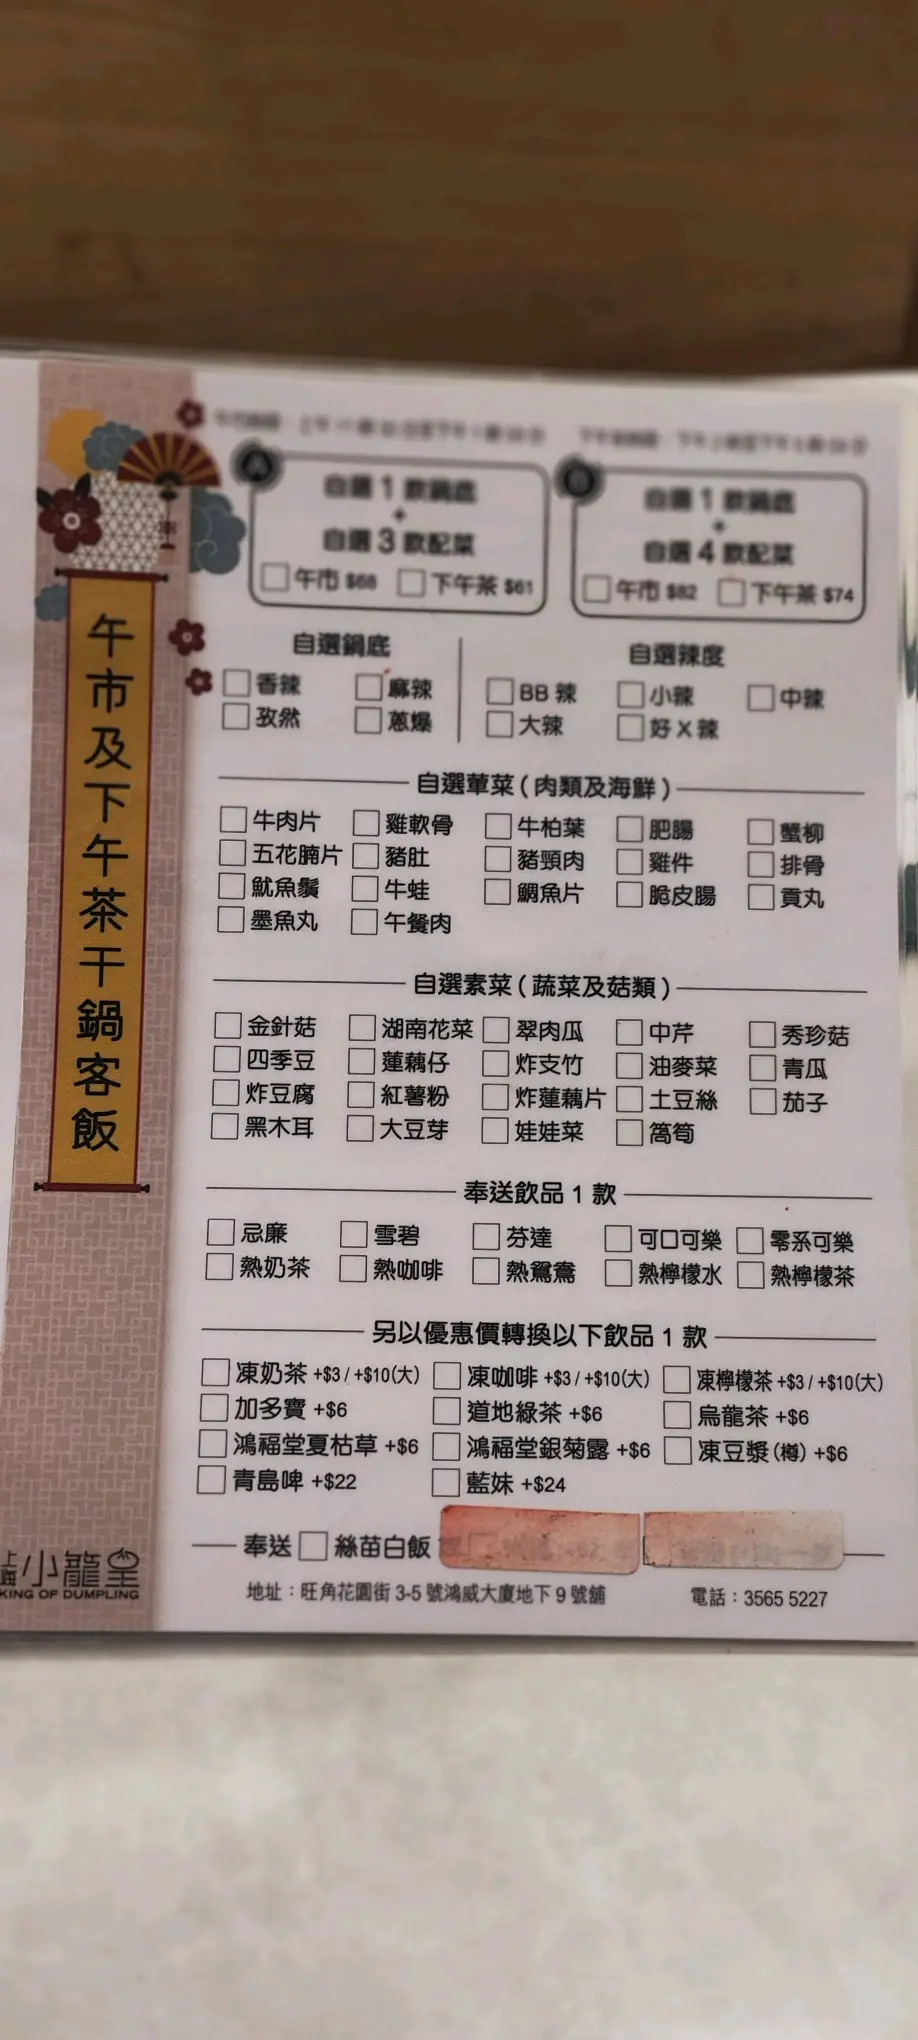 午市及下午茶干鍋客飯
A
自選 1 款鍋底
+
自選 3 款配菜
午市 $68 下午茶 $61
B
自選 1 款鍋底
+
自選 4 款配菜
午市 $82 下午茶 $74
自選鍋底
香辣 麻辣
孜然 蔥爆
自選辣度
BB 辣 小辣 中辣
大辣 好 X 辣
自選葷菜 ( 肉類及海鮮 )
牛肉片 雞軟骨 牛柏葉 肥腸 蟹柳
五花腩片 豬肚 豬頸肉 雞件 排骨
魷魚鬚 牛蛙 鯛魚片 脆皮腸 貢丸
墨魚丸 午餐肉
自選素菜 ( 蔬菜及菇類 )
金針菇 湖南花菜 翠肉瓜 中芹 秀珍菇
四季豆 蓮藕仔 炸支竹 油麥菜 青瓜
炸豆腐 紅薯粉 炸蓮藕片 土豆絲 茄子
黑木耳 大豆芽 娃娃菜 萵筍
奉送飲品 1 款
忌廉 雪碧 芬達 可口可樂 零系可樂
熱奶茶 熱咖啡 熱鴛鴦 熱檸檬水 熱檸檬茶
另以優惠價轉換以下飲品 1 款
凍奶茶 +$3 / +$10(大) 凍咖啡 +$3 / +$10(大) 凍檸檬茶 +$3 / +$10(大)
加多寶 +$6 道地綠茶 +$6 烏龍茶 +$6
鴻福堂夏枯草 +$6 鴻福堂銀菊露 +$6 凍豆漿 (樽) +$6
青島啤 +$22 藍妹 +$24
奉送 絲苗白飯
上海小龍皇
KING OF DUMPLING
地址：旺角花園街 3-5 號鴻威大廈地下 9 號舖 電話：3565 5227